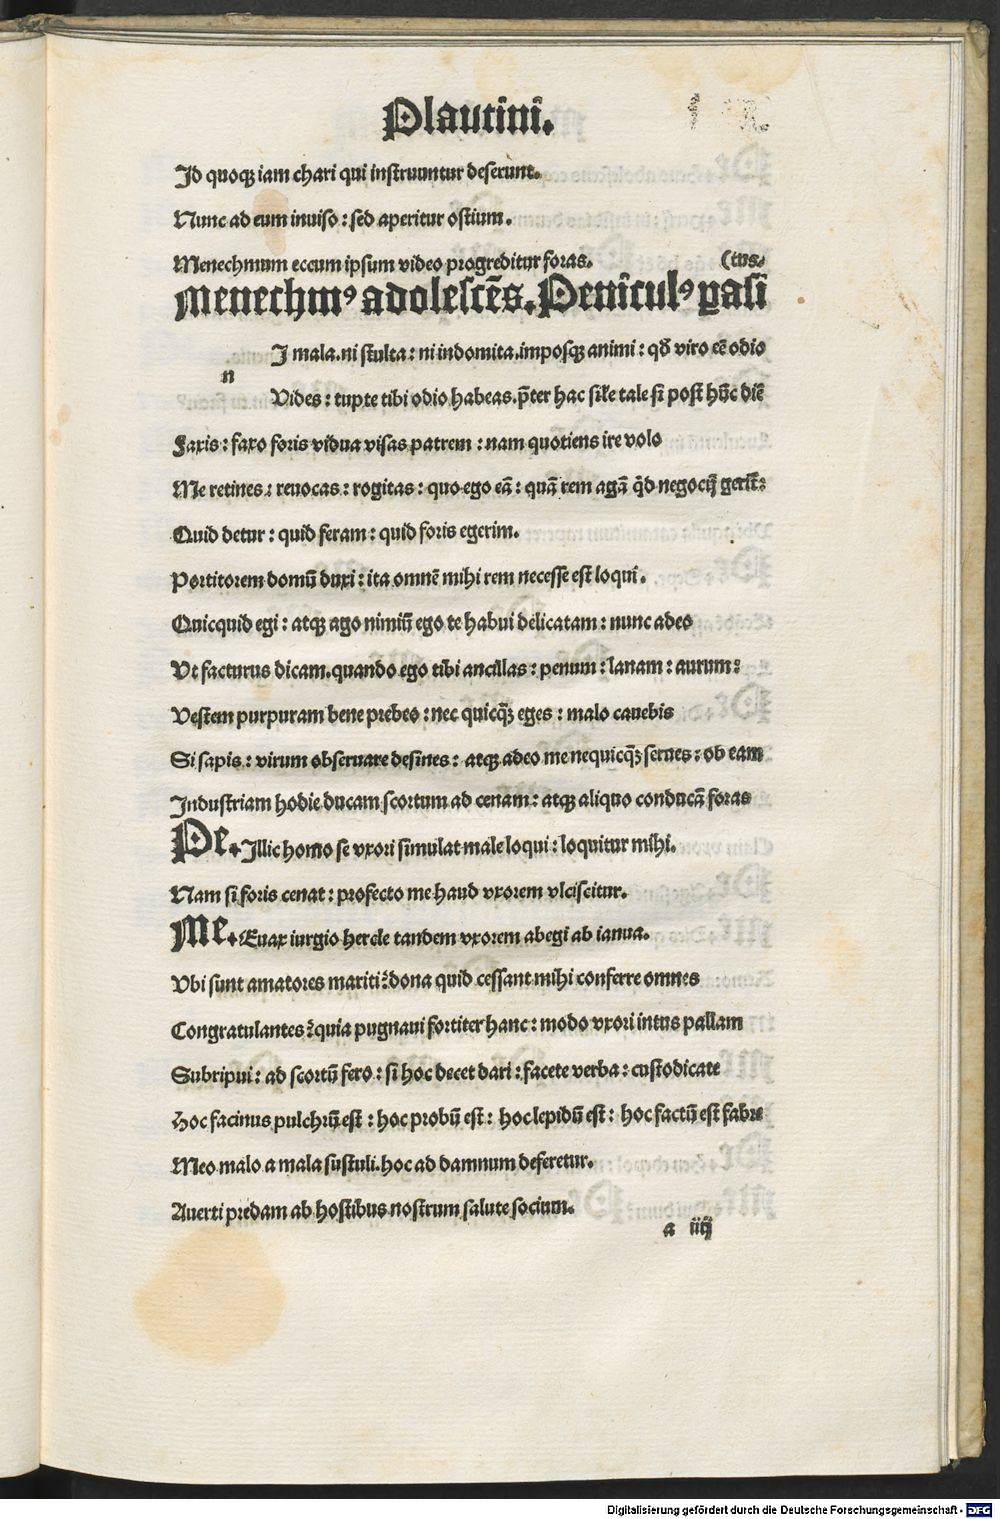 Plautini.
Id quoqꝫ iam chari qui instruuntur deserunt.
Nunc ad eum inuiso : sed aperitur ostium.
Menechmum eccum ipsum video progreditur foras. (tus.
Menechmꝰ adolescēs. Penicul⁹ parasi
I mala. ni stulta : ni indomita. imposqꝫ animi : qđ viro eē odio
n
Vides : tupte tibi odio habeas. p̄ter hac sile tale si post hūc diē
Faxis : faxo foris vidua visas patrem : nam quotiens ire volo
Me retines : reuocas : rogitas : quo ego eā : quā rem agā qd negocij
Quid detur : quid feram : quid foris egerim.
Portitorem domū duxi : ita omnē mihi rem necesse est loqui.
Quicquid egi : atqꝫ ago nimiū ego te habui delicatam : nunc adeo
Vt facturus dicam. quando ego tibi ancillas : penum : lanam : aurum :
Vestem purpuram bene prebeo : nec quicq̄ꝫ eges : malo cauebis
Si sapis : virum obseruare desines : atqꝫ adeo me nequicq̄ꝫ serues : ob eam
Industriam hodie ducam scortum ad cenam : atqꝫ aliquo conducā foras
Pe. Illic homo se vxori simulat male loqui : loquitur mihi.
Nam si foris cenat : profecto me haud vxorem vlciscitur.
Me. Euax iurgio hercle tandem vxorem abegi ab ianua.
Vbi sunt amatores mariti? dona quid cessant mihi conferre omnes
Congratulantes? quia pugnaui fortiter hanc : modo vxori intus pallam
Subripui : ad scortū fero : si hoc decet dari : facete verba : custodicate
Hoc facinus pulchrū est : hoc probū est : hoc lepidū est : hoc factū est fabre
Meo malo a mala sustuli. hoc ad damnum deferetur.
Auerti predam ab hostibus nostrum salute socium.
a iiij
Digitalisierung gefördert durch die Deutsche Forschungsgemeinschaft - DFG